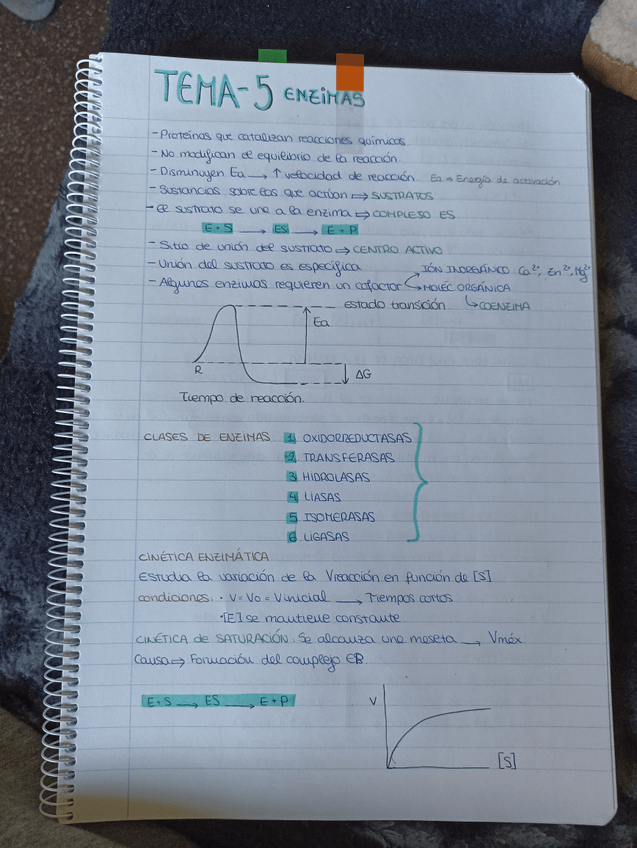 TEMA-5 ENZIMAS
- Proteínas que catalizan reacciones químicos.
- No modifican el equilibrio de la reacción.
- Disminuyen Ea → ↑ velocidad de reacción. Ea ⇒ Energía de activación
- Sustancias sobre las que actúan ⇒ SUSTRATOS
- El sustrato se une a la enzima ⇒ COMPLEJO ES
E + S → ES → E + P
- Sitio de unión del sustrato ⇒ CENTRO ACTIVO
- Unión del sustrato es específica
- Algunos enzimas requieren un cofactor
IÓN INORGÁNICO Ca²⁺, Zn²⁺, Mg²⁺
MOLÉC ORGÁNICA
↳ COENZIMA
estado transición
Ea
R
ΔG
Tiempo de reacción.
CLASES DE ENZIMAS 1 OXIDORREDUCTASAS
2 TRANSFERASAS
3 HIDROLASAS
4 LIASAS
5 ISOMERASAS
6 LIGASAS
CINÉTICA ENZIMÁTICA
Estudia la variación de la Vreacción en función de [S]
condiciones: · V = Vo = Vinicial → Tiempos cortos
· [E] se mantiene constante
CINÉTICA de SATURACIÓN: Se alcanza una meseta → Vmáx
Causa ⇒ Formación del complejo
E + S → ES → E + P
V
[S]